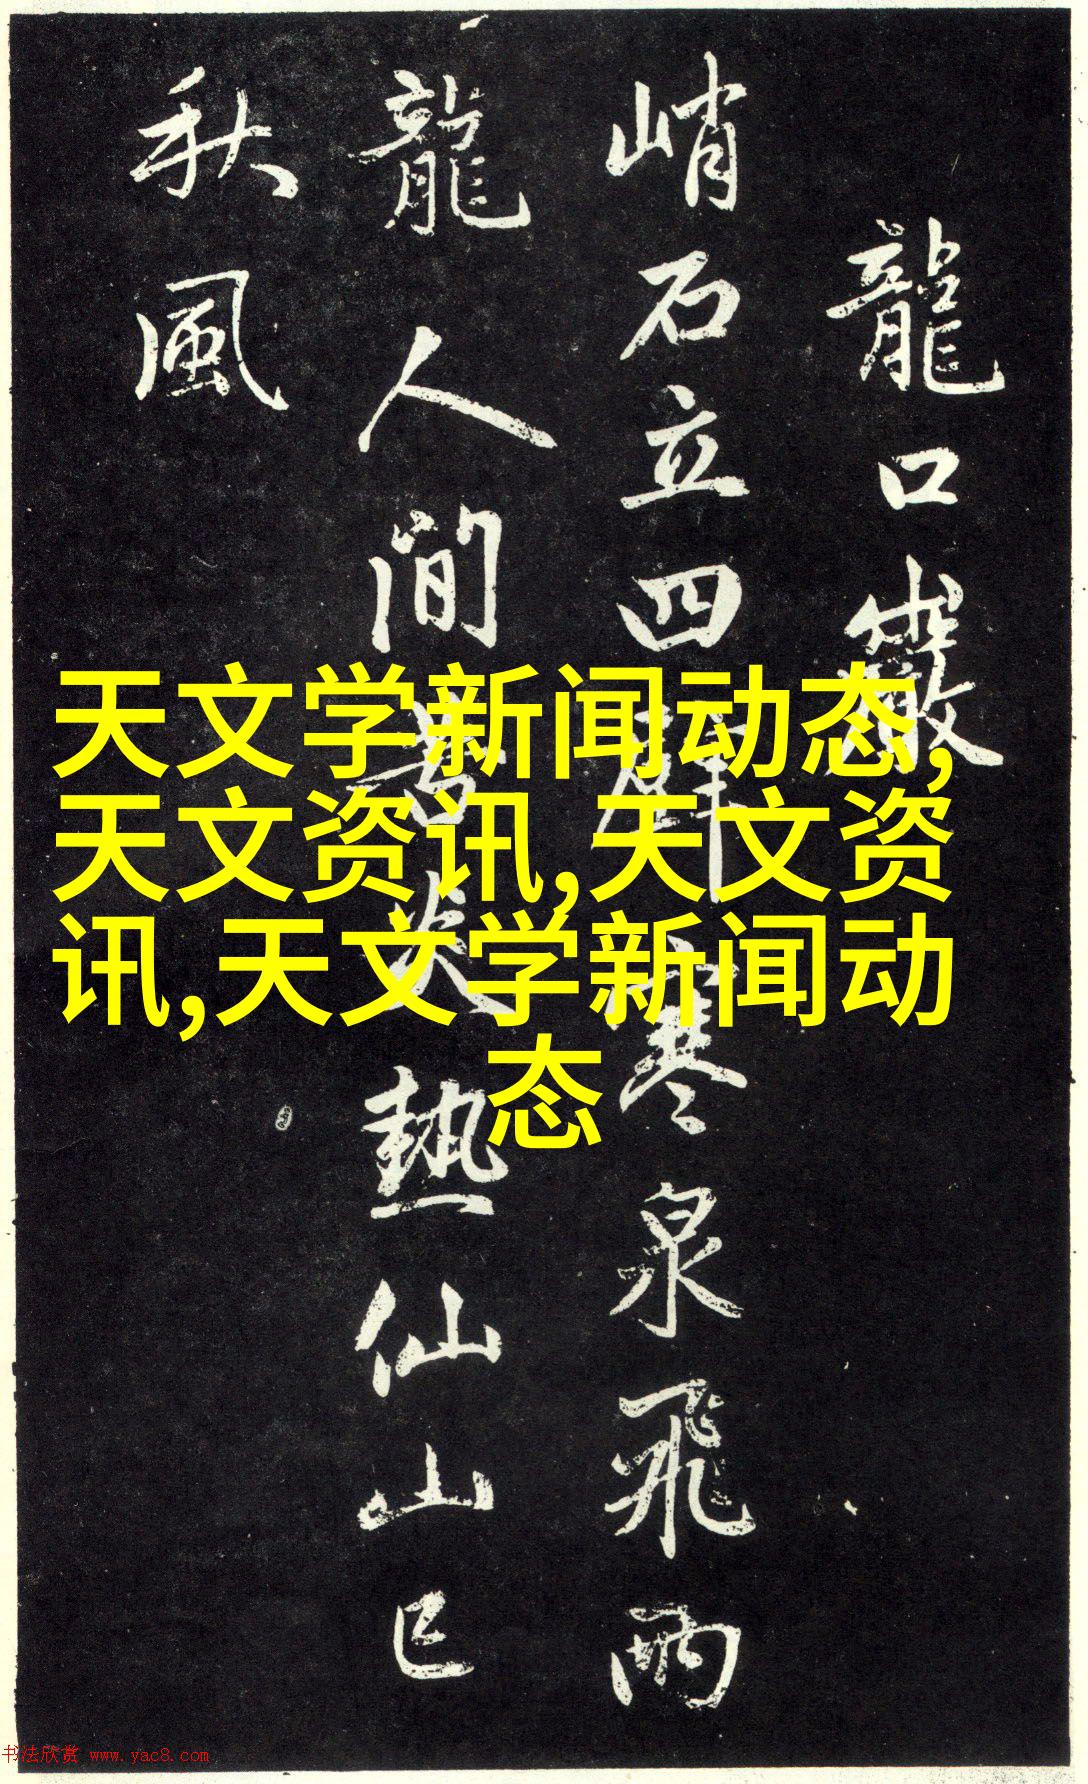 龍口巖
峭石立四壁寒泉飛雨
龍人間苦炎熱仙山已
秋風
天文学新闻动态,
天文资讯,天文资
讯,天文学新闻动
态
书法欣赏 www.yac8.com